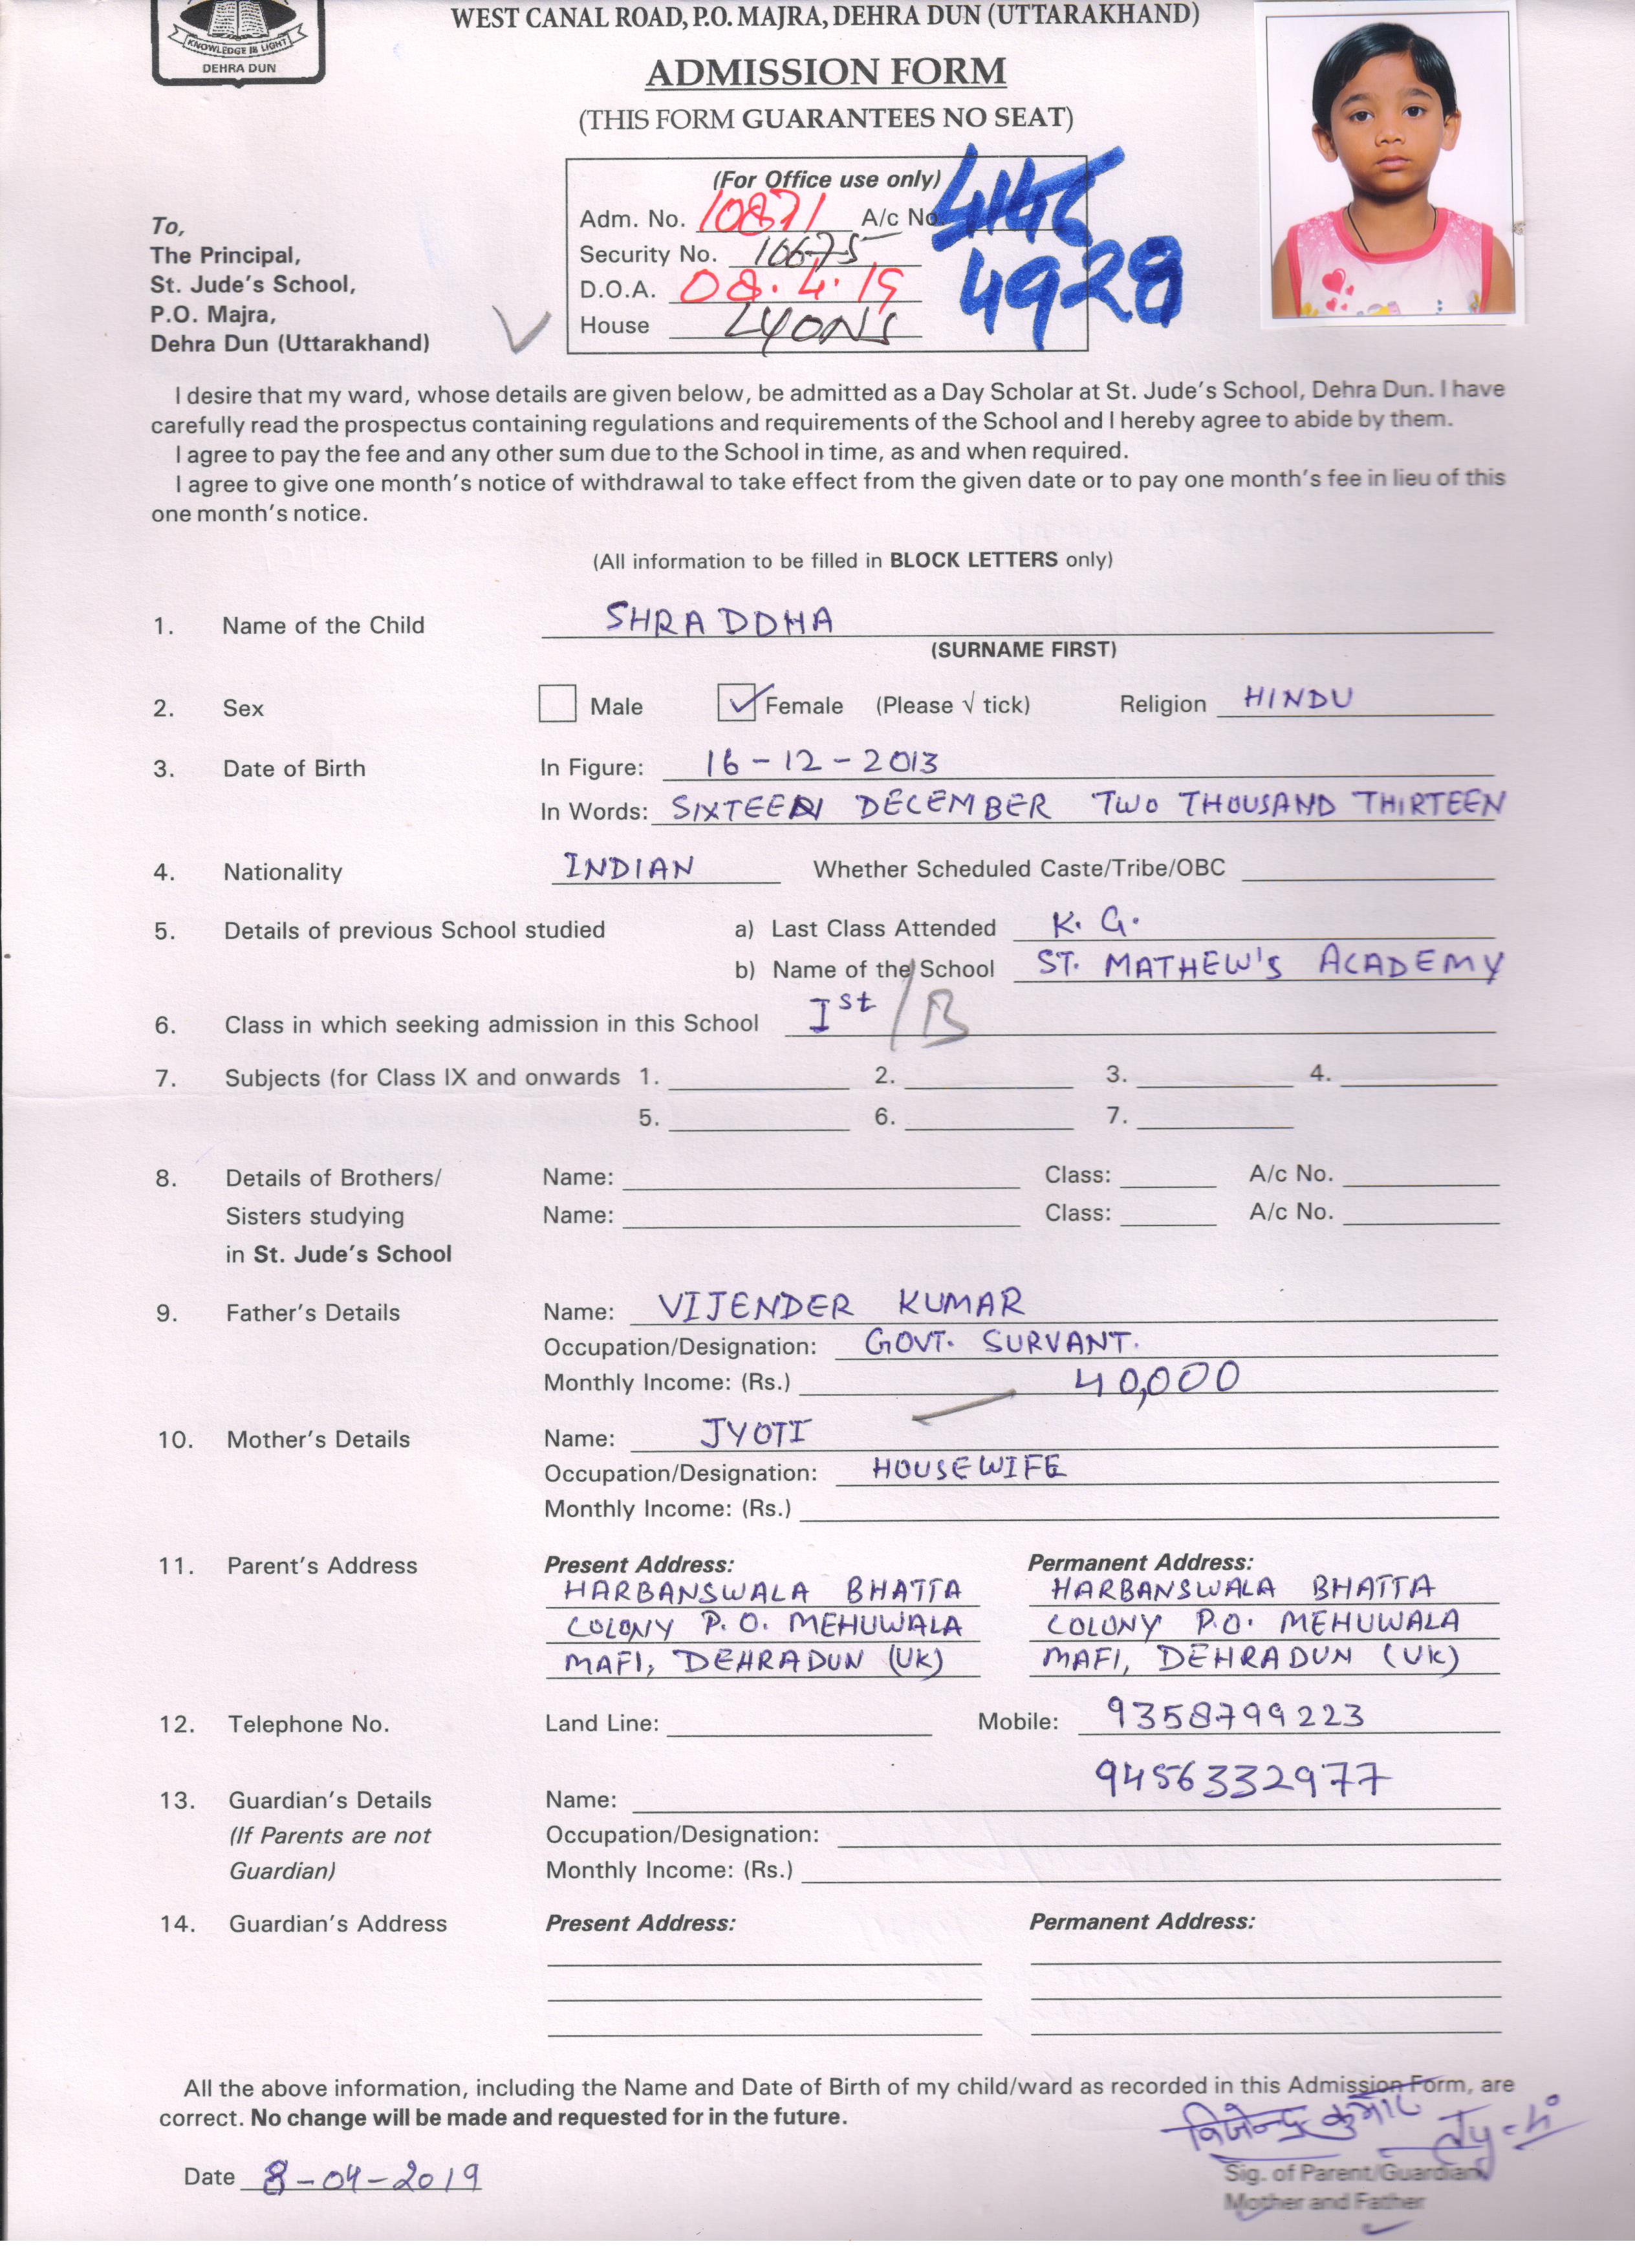 WEST CANAL ROAD, P.O. MAJRA, DEHRA DUN (UTTARAKHAND)
KNOWLEDGE IS LIGHT
DEHRA DUN
ADMISSION FORM
(THIS FORM GUARANTEES NO SEAT)
(For Office use only)
Adm. No. 10871 A/c No.
Security No. 10675
4928
D.O.A. 08.4.19
House LYONS
To,
The Principal,
St. Jude's School,
P.O. Majra,
Dehra Dun (Uttarakhand)
I desire that my ward, whose details are given below, be admitted as a Day Scholar at St. Jude's School, Dehra Dun. I have
carefully read the prospectus containing regulations and requirements of the School and I hereby agree to abide by them.
I agree to pay the fee and any other sum due to the School in time, as and when required.
I agree to give one month's notice of withdrawal to take effect from the given date or to pay one month's fee in lieu of this
one month's notice.
(All information to be filled in BLOCK LETTERS only)
1. Name of the Child SHRADDHA
(SURNAME FIRST)
2. Sex Male Female (Please √ tick) Religion HINDU
3. Date of Birth In Figure: 16-12-2013
In Words: SIXTEEN DECEMBER TWO THOUSAND THIRTEEN
4. Nationality INDIAN Whether Scheduled Caste/Tribe/OBC
5. Details of previous School studied a) Last Class Attended K. G.
b) Name of the School ST. MATHEW'S ACADEMY
6. Class in which seeking admission in this School Ist / B
7. Subjects (for Class IX and onwards 1. 2. 3. 4.
5. 6. 7.
8. Details of Brothers/ Name: Class: A/c No.
Sisters studying Name: Class: A/c No.
in St. Jude's School
9. Father's Details Name: VIJENDER KUMAR
Occupation/Designation: GOVT. SURVANT.
Monthly Income: (Rs.) 40,000
10. Mother's Details Name: JYOTI
Occupation/Designation: HOUSEWIFE
Monthly Income: (Rs.)
11. Parent's Address Present Address: Permanent Address:
HARBANSWALA BHATTA HARBANSWALA BHATTA
COLONY P.O. MEHUWALA COLONY P.O. MEHUWALA
MAFI, DEHRADUN (UK) MAFI, DEHRADUN (UK)
12. Telephone No. Land Line: Mobile: 9358799223
9456332977
13. Guardian's Details Name:
(If Parents are not Occupation/Designation:
Guardian) Monthly Income: (Rs.)
14. Guardian's Address Present Address: Permanent Address:
All the above information, including the Name and Date of Birth of my child/ward as recorded in this Admission Form, are
correct. No change will be made and requested for in the future.
विजेन्द्र कुमार Jyoti
Date 8-04-2019
Sig. of Parent/Guardian
Mother and Father